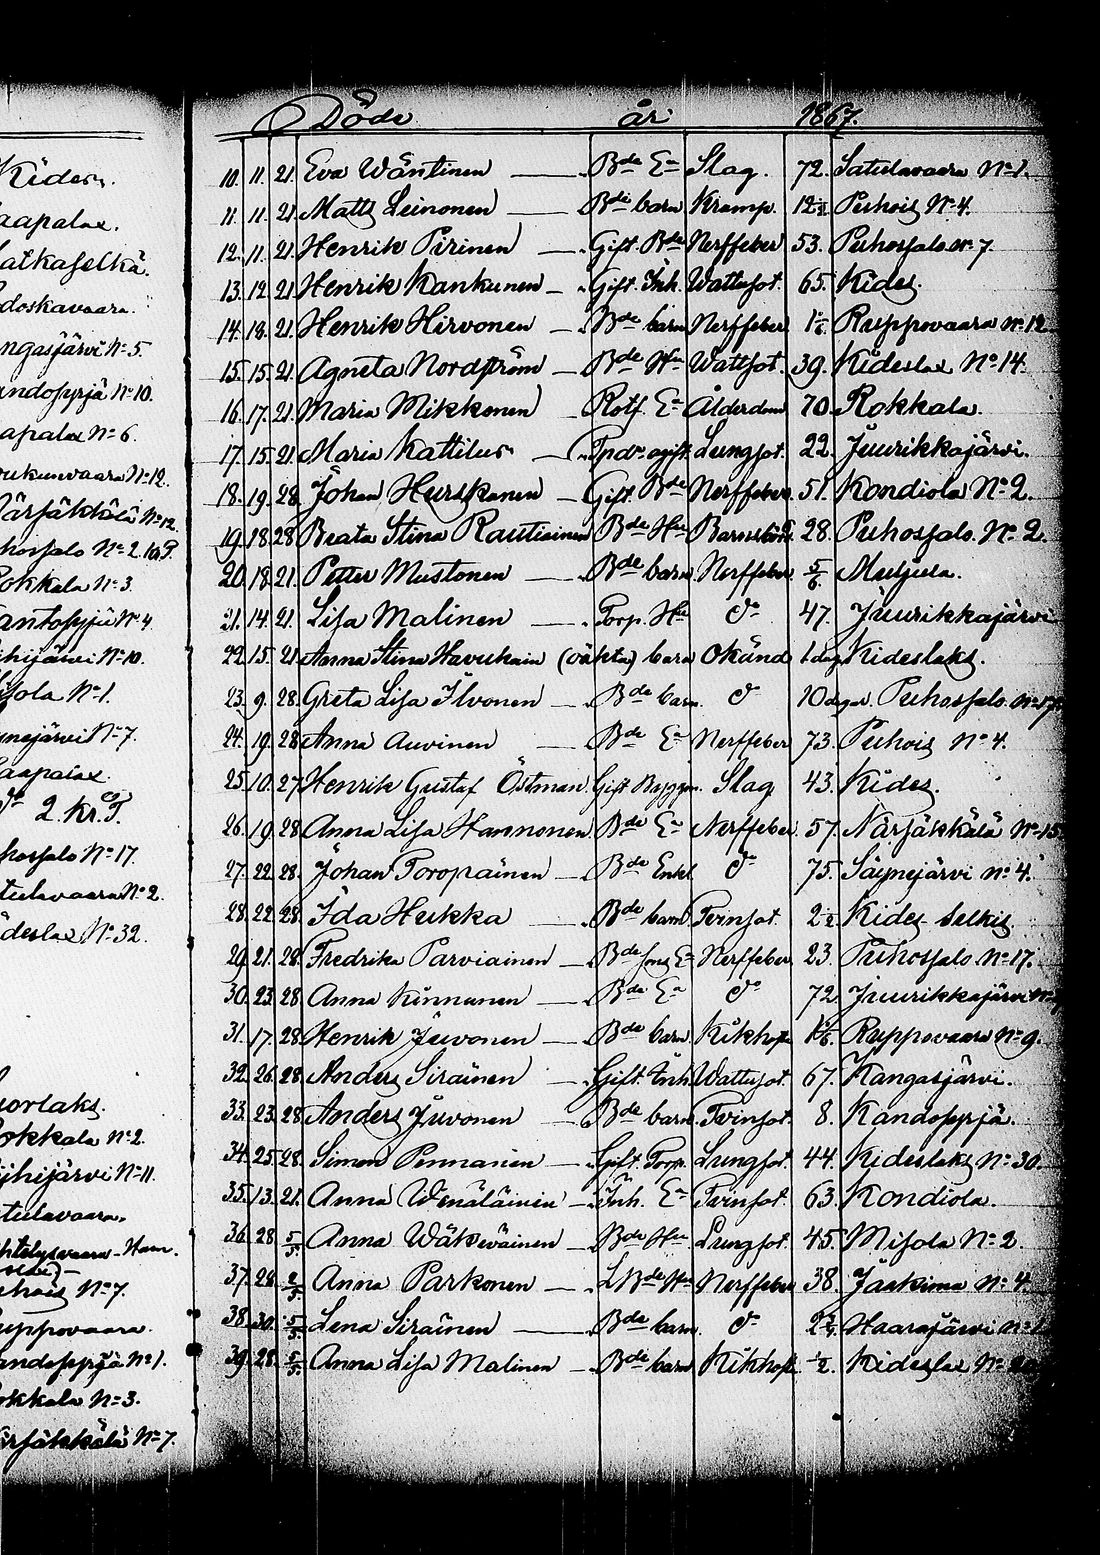 Döde år 1867.
Kides.
10. 11. 21. Eva Wäntinen B:de E:a Slag. 72. Satulavaara N:o 1.
aapalax.
11. 11. 21. Matts Leinonen B:de barn Kramp. 12 Puhois N:o 4.
atkaselkä.
12. 11. 21. Henrik Pirinen Gift. B:de Nerffeber 53. Puhossalo N:o 7.
doskavaara.
13. 12. 21. Henrik Kankunen Gift. Inh. Wattusot. 65. Kides.
14. 18. 21. Henrik Hirvonen B:de barn Nerffeber Ruppovaara N:o 12.
ngasjärvi N:o 5.
15. 15. 21. Agneta Nordström B:de H:u Wattsot. 39. Kideslax N:o 14.
andopyrjä N:o 10.
16. 17. 21. Maria Mikkonen Rotf. E:a Ålderdom 70. Rokkala.
apalax N:o 6.
17. 15. 21. Maria Kattilus ogift Lungsot. 22. Juurikkajärvi.
ukunvaara N:o 12.
18. 19. 28. Johan Hurskanen Gift. B:de Nerffeber. 51. Kondiola N:o 2.
Närsäkkälä N:o 12.
19. 18. 28. Beata Stina Rautiainen B:de H:u Barnsbörd. 28. Puhossalo. N:o 2.
hossalo N:o 2.
20. 18. 21. Petter Mustonen B:de barn Nerffeber 5/6. Muljula.
Rokkala N:o 3.
21. 14. 21. Lisa Malinen Torp. H:u d:o 47. Juurikkajärvi
antopyjü N:o 4
22. 15. 21. Anna Stina Havukain (oäkta) barn Okänd 1 dag Kideslaks.
hijärvi N:o 10.
23. 9. 28. Greta Lisa Ilvonen B:de barn. d:o 10 dagar. Puhossalo N:o 17.
sola N:o 1.
24. 19. 28. Anna Auvinen B:de E:a Nerffeber 73. Puhois N:o 4.
nejärvi N:o 7.
25. 10. 27. Henrik Gustaf Östman Gift Byggm. Slag 43. Kides.
aapalax.
d:o 2. Kr. T.
26. 19. 28. Anna Lisa Hannonen B:de E:a Nerffeber. 57. Närsäkkälä N:o 15.
hossalo N:o 17.
27. 22. 28. Johan Toropainen B:de Enkl. d:o 75. Säynejärvi N:o 4.
tulavaara N:o 2.
28. 22. 28. Ida Hukka B:de barn Tvinsot. Kides Selkis.
ideslax N:o 32.
29. 21. 28. Fredrika Parviainen B:de E:a Nerffeber 23. Puhossalo N:o 17.
30. 23. 28. Anna Kinnunen B:de E:a d:o 72. Juurikkajärvi
31. 17. 28. Henrik Juvonen B:de barn Kikhosta Ruppovaara N:o 9.
32. 26. 28. Anders Sirainen Gift. Inh. Wattusot. 67. Kangasjärvi.
uorlaks.
33. 23. 28. Anders Juvonen B:de barn Tvinsot. 8. Kandopyrjä.
okkala N:o 2.
34. 25. 28. Simon Pennanen Gift. Torp. Lungsot. 44. Kideslaks N:o 30.
ihijärvi N:o 11.
35. 13. 21. Anna Wenäläinin Inh. E:a Tvinsot. 63. Kondiola.
tulavaara.
36. 28. 5/5. Anna Wäkeväinen B:de H:u Lungsot. 45. Misola N:o 2
htelysvaara
37. 28. Anna Parkonen L B:de H:u Nerffeber 38. Jaakima N:o 4.
uhois N:o 7.
38. 30. 5/5. Lena Sirainen B:de barn. d:o Haarajärvi
uppovaara.
39. 28. 5/5. Anna Lisa Malinen B:de barn Kikhosta 1/2. Kideslax
andopyrjä N:o 1.
okkala N:o 3.
ärsäkkälä N:o 7.